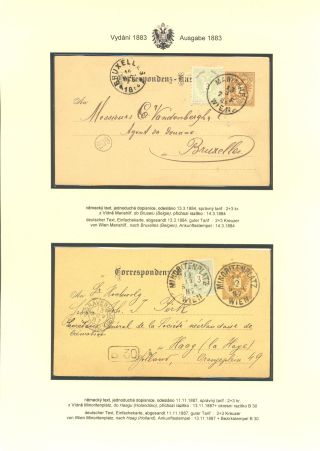 Vydání 1883 Ausgabe 1883
BRUXELLES
Correspondenz-Karte
MARIAHILF
WIEN
An
Messieurs E. Vandenbergh
Agent en douane
Bruxelles
německý text, jednoduchá dopisnice, odesláno 13.3.1884, správný tarif : 2+3 kr.
z Vídně Mariahilf, do Bruselu (Belgien), příchozí razítko : 14.3.1884
deutscher Text, Einfachekarte, abgesandt 13.3.1884, guter Tarif : 2+3 Kreuzer
von Wien Mariahilf, nach Bruxelles (Belgien), Ankunftsstempel : 14.3.1884
Correspondenz
MINORITENPLATZ
WIEN
MINORITENPLATZ
WIEN
2
général de la Société néerlandaise de
Haag (la Haye)
Holland, Oranjeplein 49
B 30
německý text, jednoduchá dopisnice, odesláno 11.11.1887, správný tarif : 2+3 kr.
z Vídně Minoritenplatz, do Haagu (Holandsko), příchozí razítko : 13.11.1887+ okrskní razítko B 30
deutscher Text, Einfachekarte, abgesandt 11.11.1887, guter Tarif : 2+3 Kreuzer
von Wien Minoritenplatz, nach Haag (Holland), Ankunftsstempel : 13.11.1887 + Bezirkstempel B 30